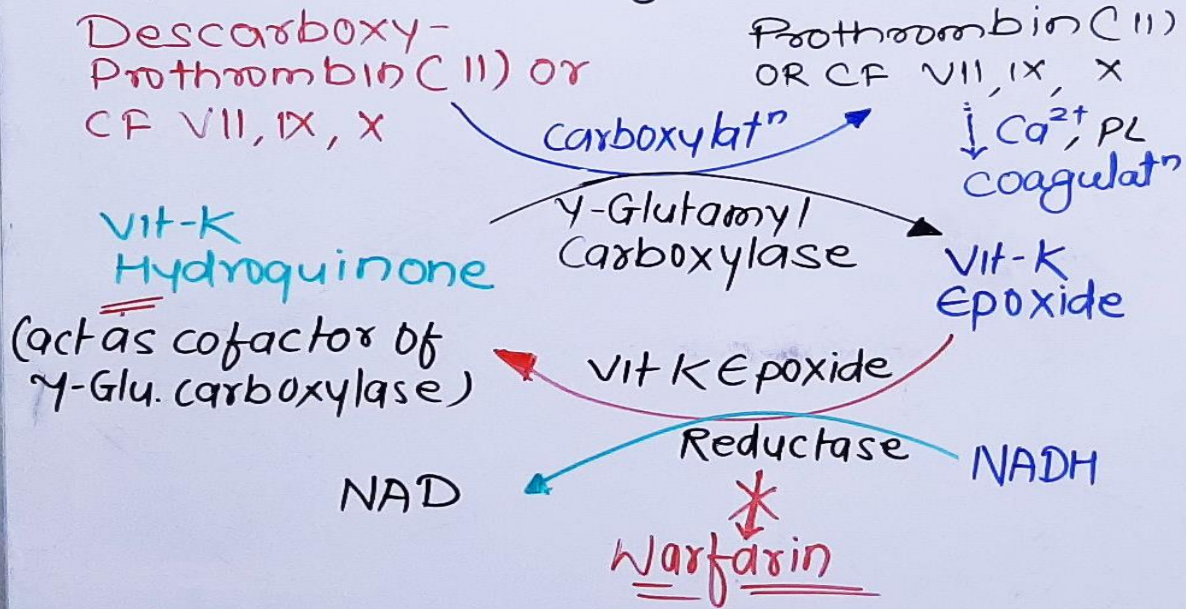 Descarboxy-
Prothrombin (II) or
CF VII, IX, X
Prothrombin (II)
OR CF VII, IX, X
Ca²⁺, PL
Coagulatⁿ
Carboxylatⁿ
γ-Glutamyl
Carboxylase
Vit-K
Hydroquinone
(act as cofactor of
γ-Glu. carboxylase)
Vit-K
Epoxide
Vit K Epoxide
Reductase
NADH
NAD
Warfarin